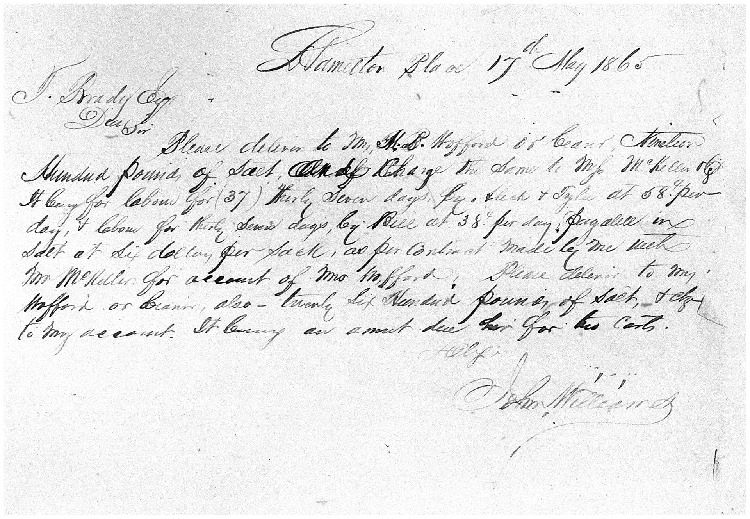 Hamilton Place 17th May 1865
T. Brady Esq
Dear Sir
Please deliver to Mr, H. P. Wofford or bearer, Nineteen
Hundred pounds of Salt, and Charge the same to Mssr McKeller & Co
It being for labour for (37) thirty seven days by, & Tyler at 58c per
day, & labour for thirty seven days, by Bill at 38c per day, payable in
Salt at Six dollars per Sack, as per contract made by me with
Mr McKeller for account of Mrs Wofford, Please deliver to Mr
Wofford or bearer, also - twenty Six Hundred pounds of Salt, & chg
to my account. It being an amnt due him for two carts.
John, Williams